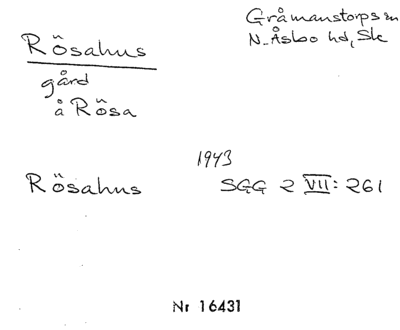 Rösahus
Gråmanstorps sn
N. Åsbo hd, Sk
gård
å Rösa
1943
Rösahus SGG 2 VII: 261
Nr 16431